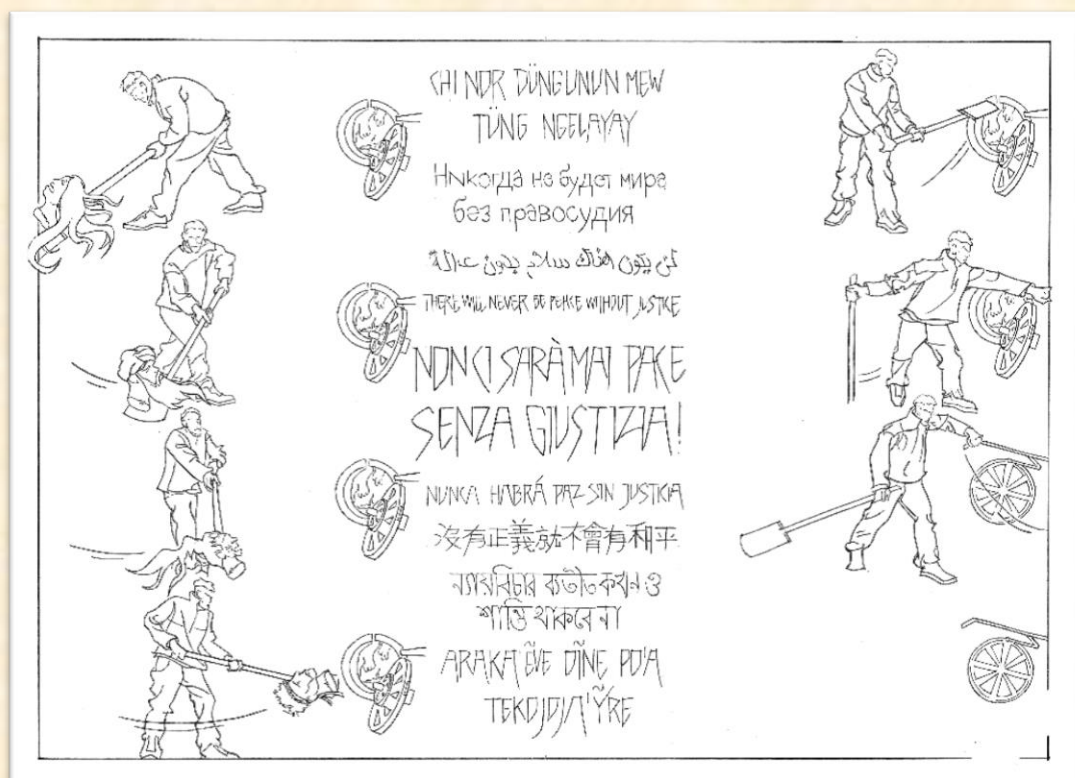 CHI NOR DÜNGUNUN MEW
TÜNG NGELAYAY
Никогда не будет мира
без правосудия
لن يكون هناك سلام بدون عدالة
THERE WILL NEVER BE PEACE WITHOUT JUSTICE
NON CI SARÀ MAI PACE
SENZA GIUSTIZIA!
NUNCA HABRÁ PAZ SIN JUSTICIA
沒有正義就不會有和平
ন্যায়বিচার ব্যতীত কখনও
শান্তি থাকবে না
ARAKA'ẼVE OĨNE PO'A
TEKOJOJA'ỸRE